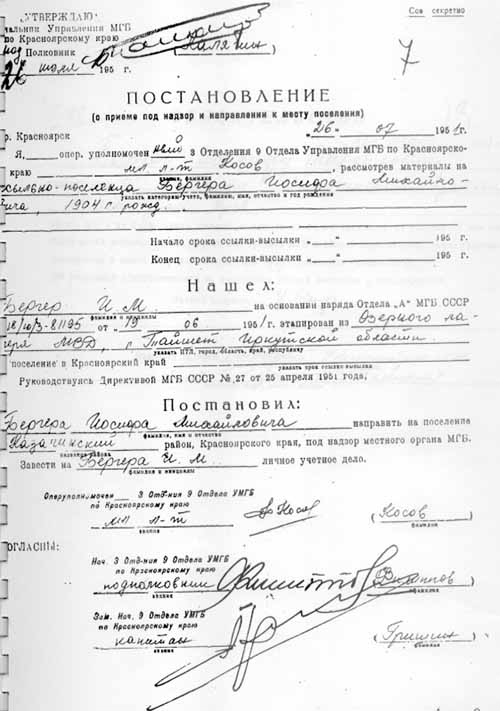 УТВЕРЖДАЮ: Сов секретно
Управления МГБ
по Красноярскому краю
Полковник (Калягин)
26 июля 1951 г. 7
ПОСТАНОВЛЕНИЕ
(о приеме под надзор и направлении к месту поселения)
г. Красноярск „26“ 07 1951г.
Я, опер. уполномочен ный 3 Отделения 9 Отдела Управления МГБ по Красноярско-
краю мл л-т Косов, рассмотрев материалы на
ссыльно-поселенца Бергера Иосифа Михайло-
вича, 1904 г. рожд.
указать категорию учета, фамилию, имя, отчество и год рождения
Начало срока ссылки-высылки „ “ 195 г.
Конец срока ссылки-высылки „ “ 195 г.
Нашел:
Бергер И. М. на основании наряда Отдела „А“ МГБ СССР
фамилия и инициалы
18/10/3-81195 от „19 06 1951 г. этапирован из Озерного ла-
геря МВД г. Тайшет Иркутской области
указать ИТЛ, город, область, край, республику
поселение в Красноярский край
указать срок ссылки-высылки
Руководствуясь Директивой МГБ СССР № 27 от 25 апреля 1951 года,
Постановил:
Бергера Иосифа Михайловича направить на поселение
фамилия, имя и отчество
Казачинский район, Красноярского края, под надзор местного органа МГБ.
название района
Завести на Бергера И. М. личное учетное дело.
фамилия и инициалы
Оперуполномочен 3 Отд-ния 9 Отдела УМГБ
по Красноярскому краю
мл л-т Косов (Косов)
звание фамилия
СОГЛАСНЫ:
Нач. 3 Отд-ния 9 Отдела УМГБ
по Красноярскому краю
подполковник (Филиппов)
звание фамилия
Зам. Нач. 9 Отдела УМГБ
по Красноярскому краю
капитан (Гришин)
звание фамилия